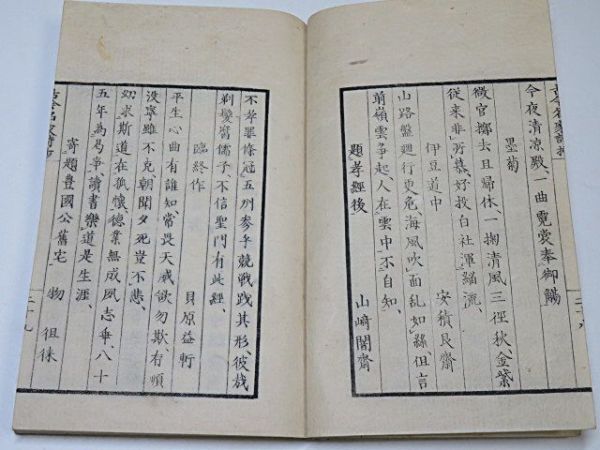 今夜清凉殿、一曲霓裳奉御觴
墨菊
微官擲去且歸休一掬清風三徑秋、金紫
従来非所慕、好投白社渾緇流、
伊豆道中　安積艮齋
山路盤廻行更危、海風吹面乱如絲但言
前嶺雲争起、人在雲中不自知、
題孝經後　山﨑闇齋
不孝罪條冠五刑參乎競戰践其形、彼哉
剃髪窩儒子、不信聖門有此經、
臨終作　貝原益軒
平生心曲有誰知常畏天威欲勿欺、存順
没寧雖不克、朝聞夕死豈不悲、
幼求斯道在孤懐、徳業無成夙志乖、八十
五年為曷事、讀書樂道是生涯、
寄題豊國公舊宅　物徂徠